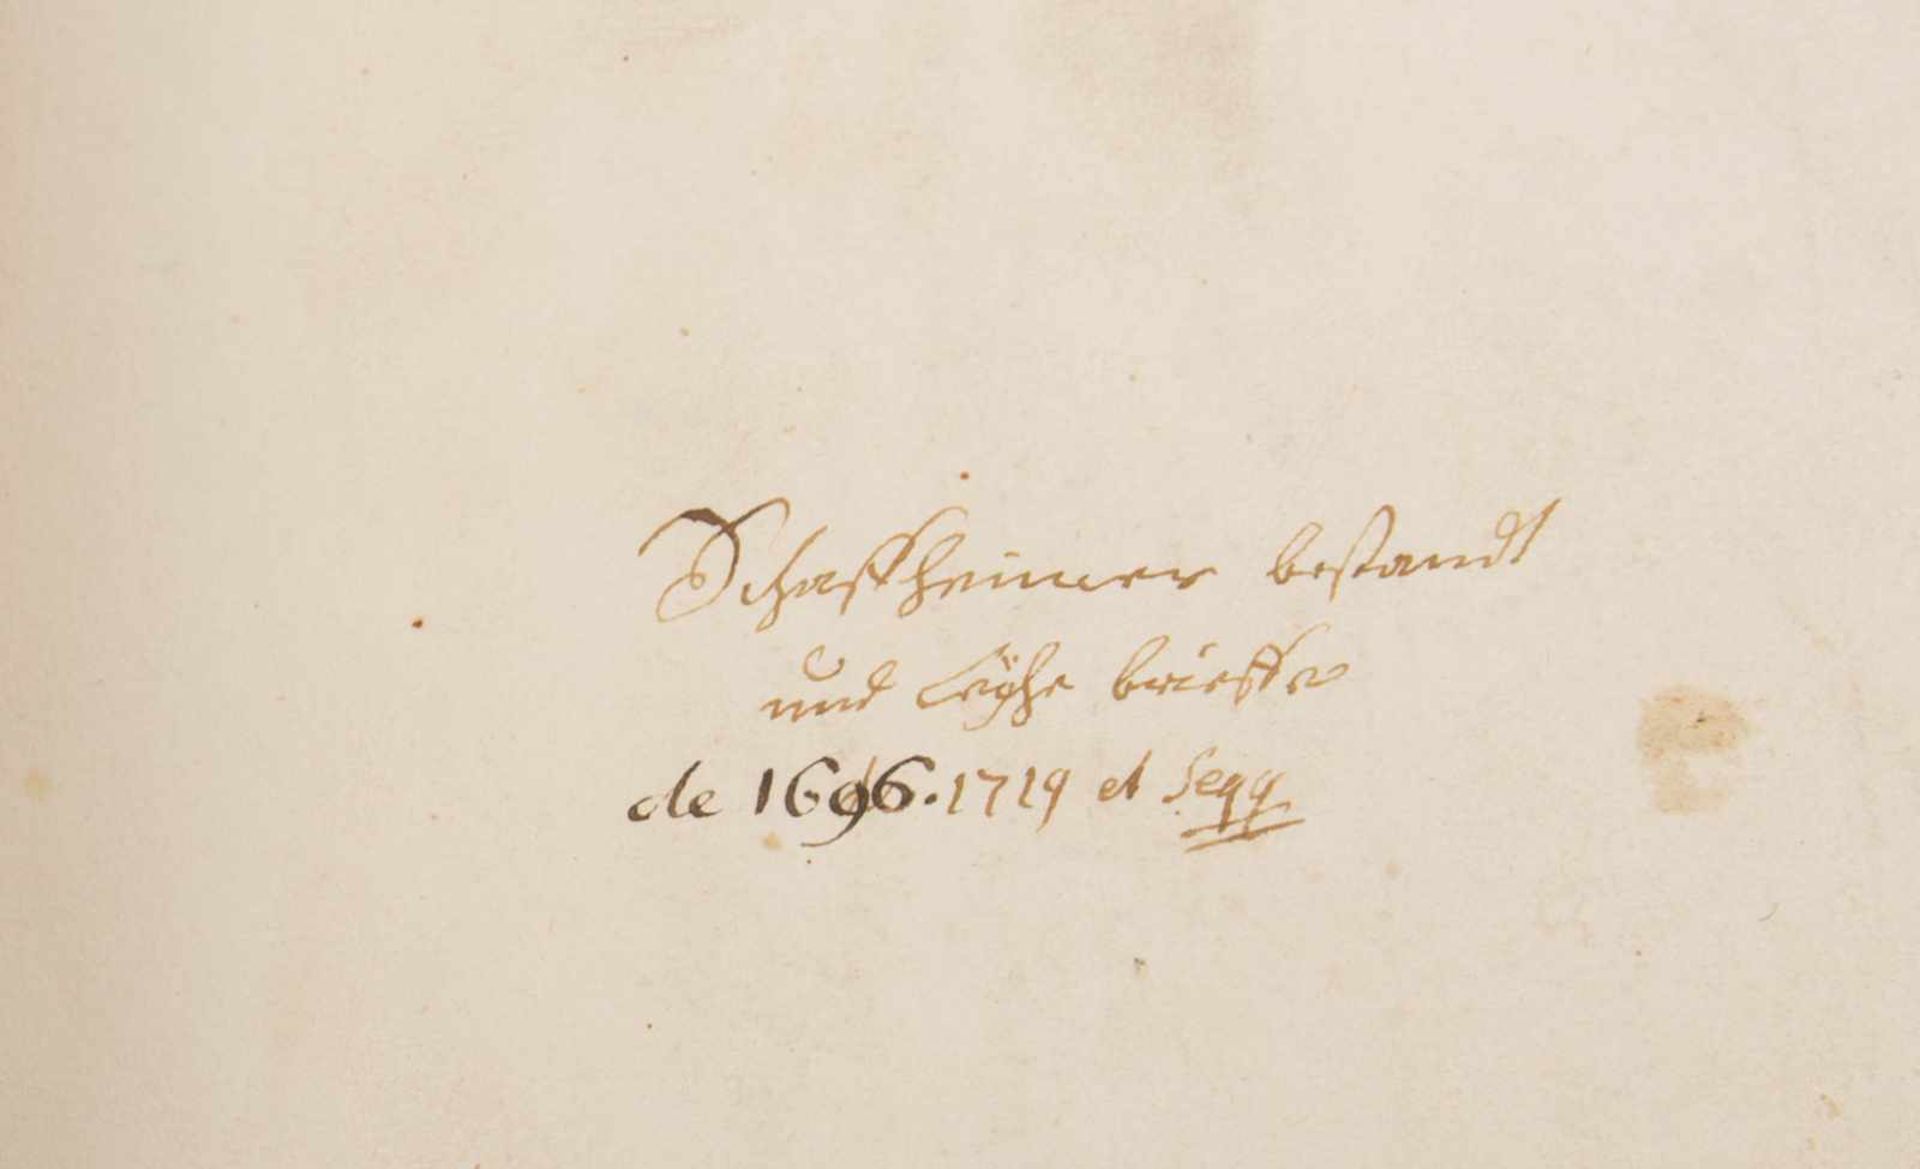 Schaffheimer bestandt
und Leyhe brieffe
de 1696. 1719 et seqq.